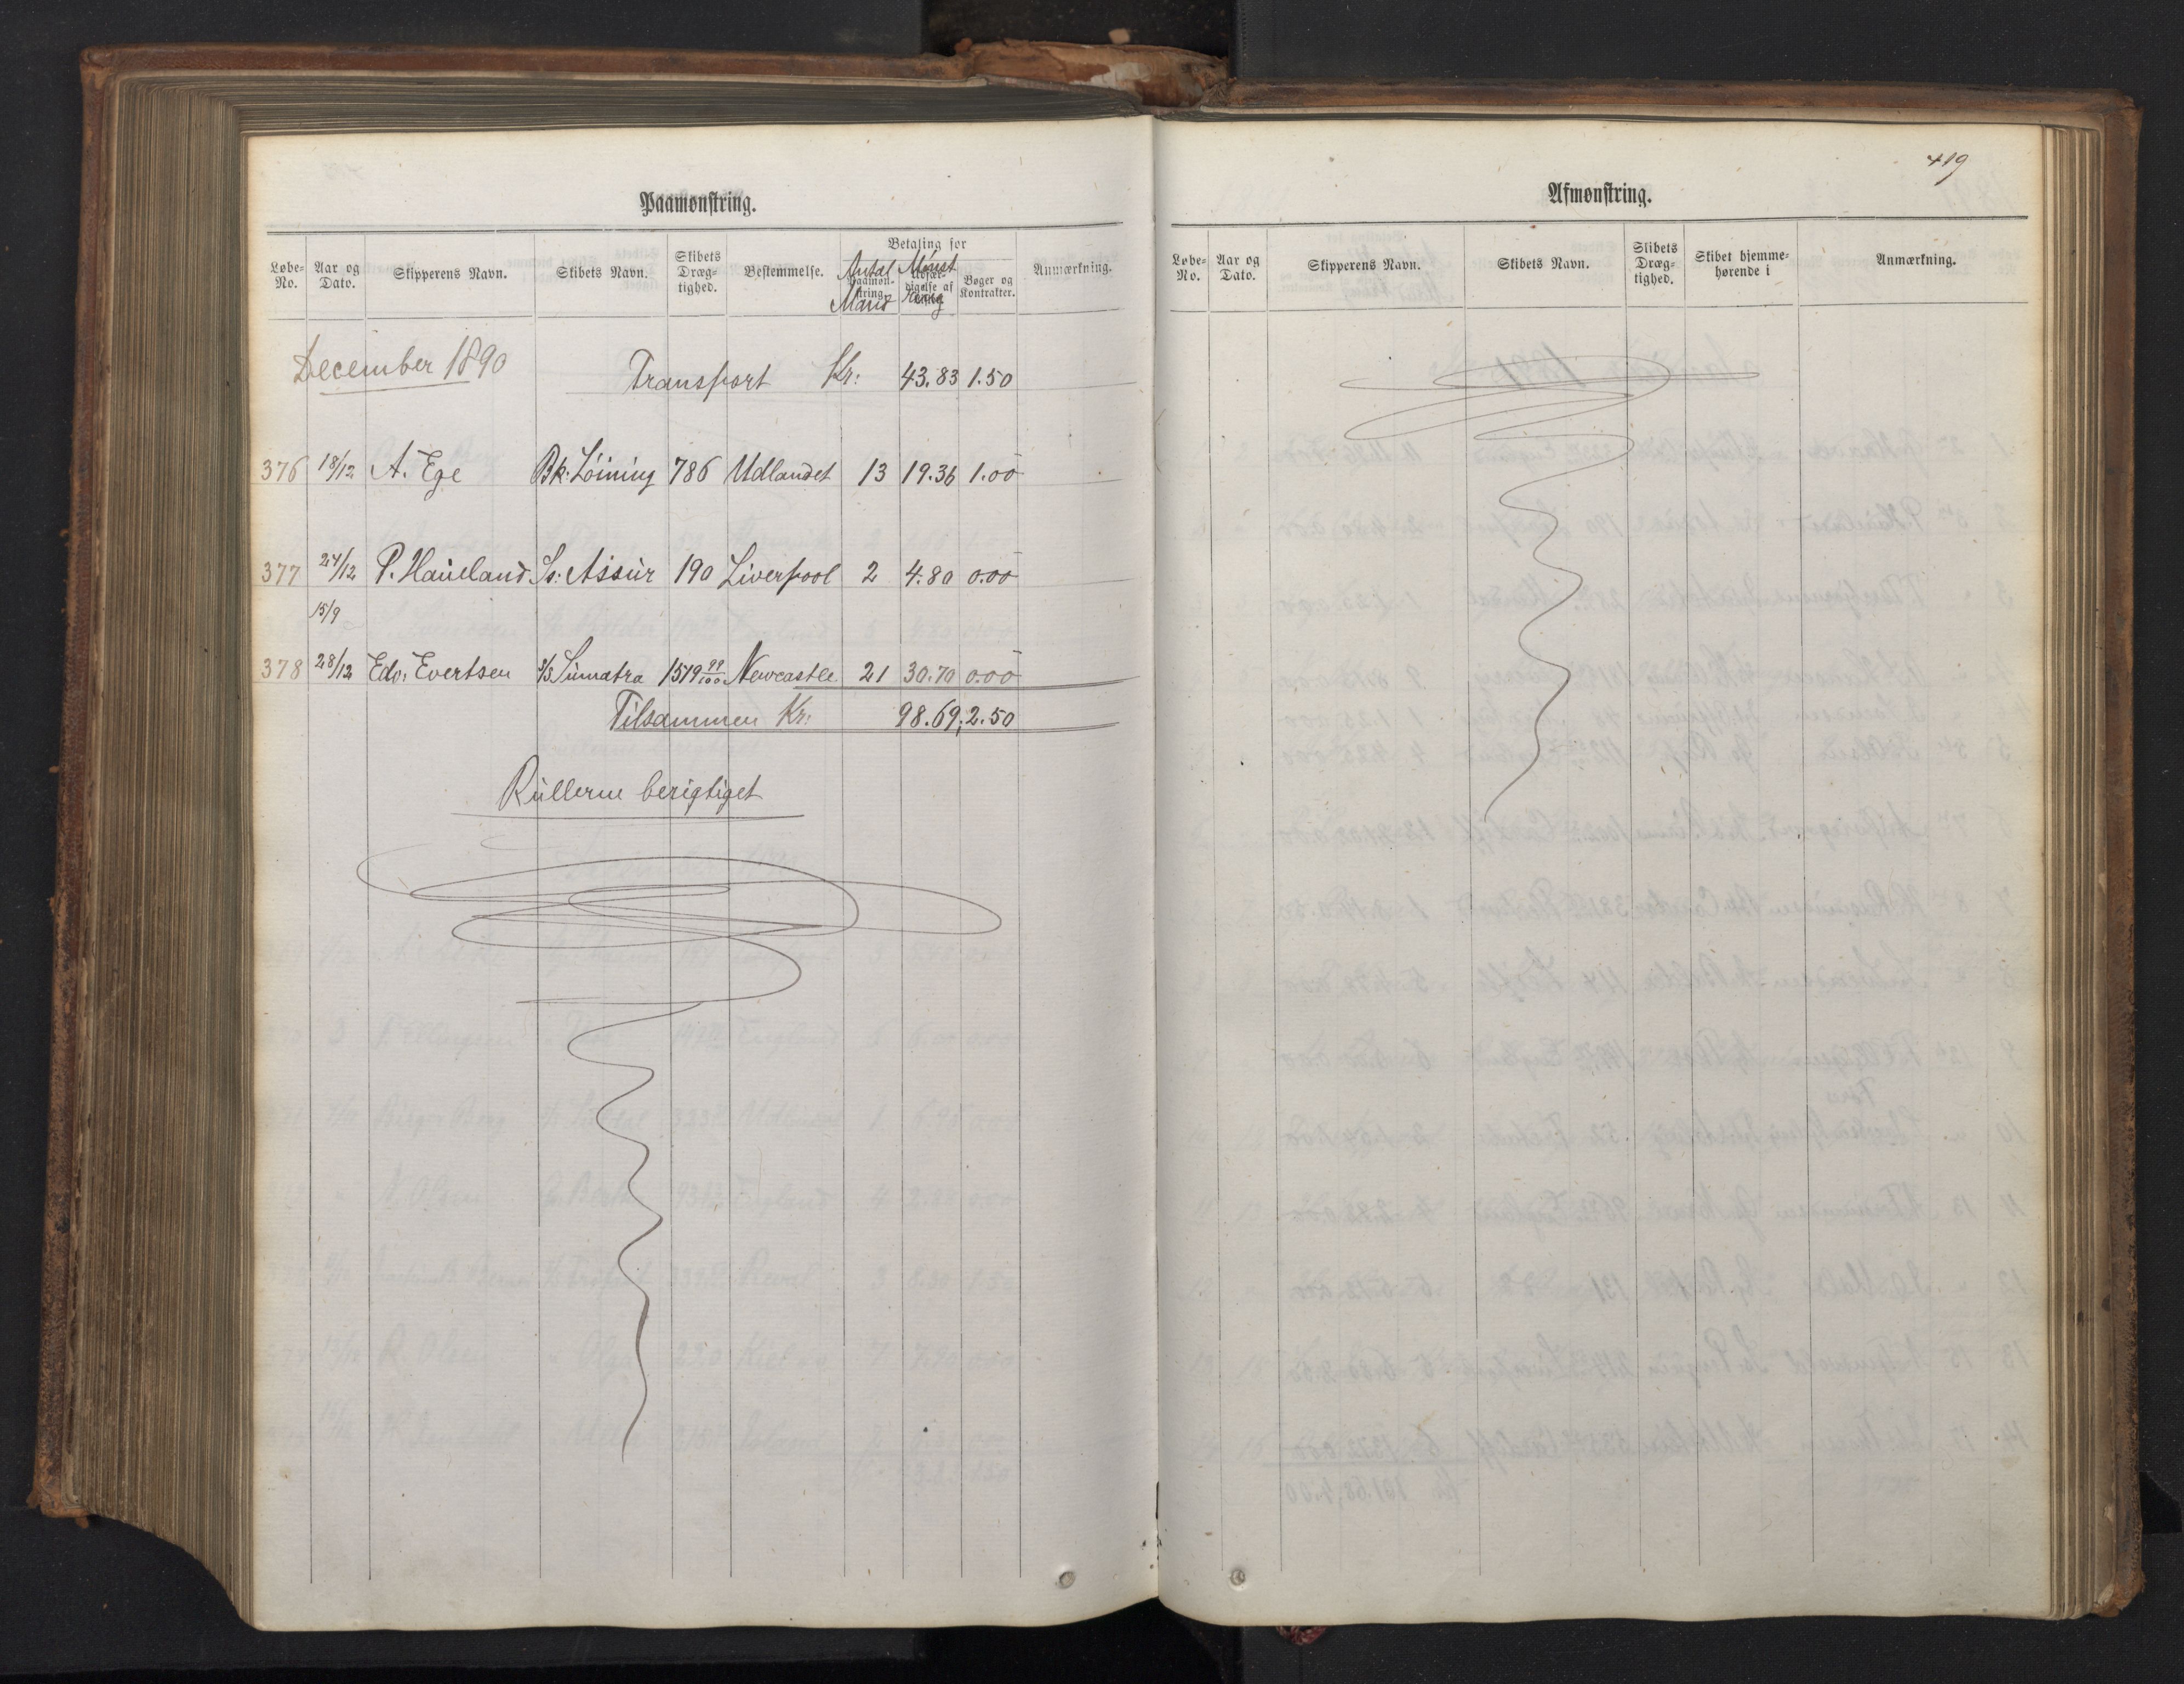 Paamønstring.
Løbe-No. Aar og Dato. Skipperens Navn. Skibets Navn. Skibets Dræg-tighed. Bestemmelse. Betaling for Antal Mand Mønst ring Bøger og Kontrakter. Anmærkning.
December 1890 Transport Kr: 43.83 1.50
376 18/12 A. Ege Bk. Löining 786 Udlandet 13 19.36 1.00
377 24/12 P. Haueland Ss: Assur 190 Liverpool 2 4.80 0.00
15/9
378 28/12 Edv. Evertsen S/S Sumatra 1519 99/100 Newcastle 21 30.70 0.00
Tilsammen Kr: 98.69; 2.50
Rullerne berigtiget
419
Afmønstring.
Løbe-No. Aar og Dato. Skipperens Navn. Skibets Navn. Skibets Dræg-tighed. Skibet hjemme-hørende i Anmærkning.